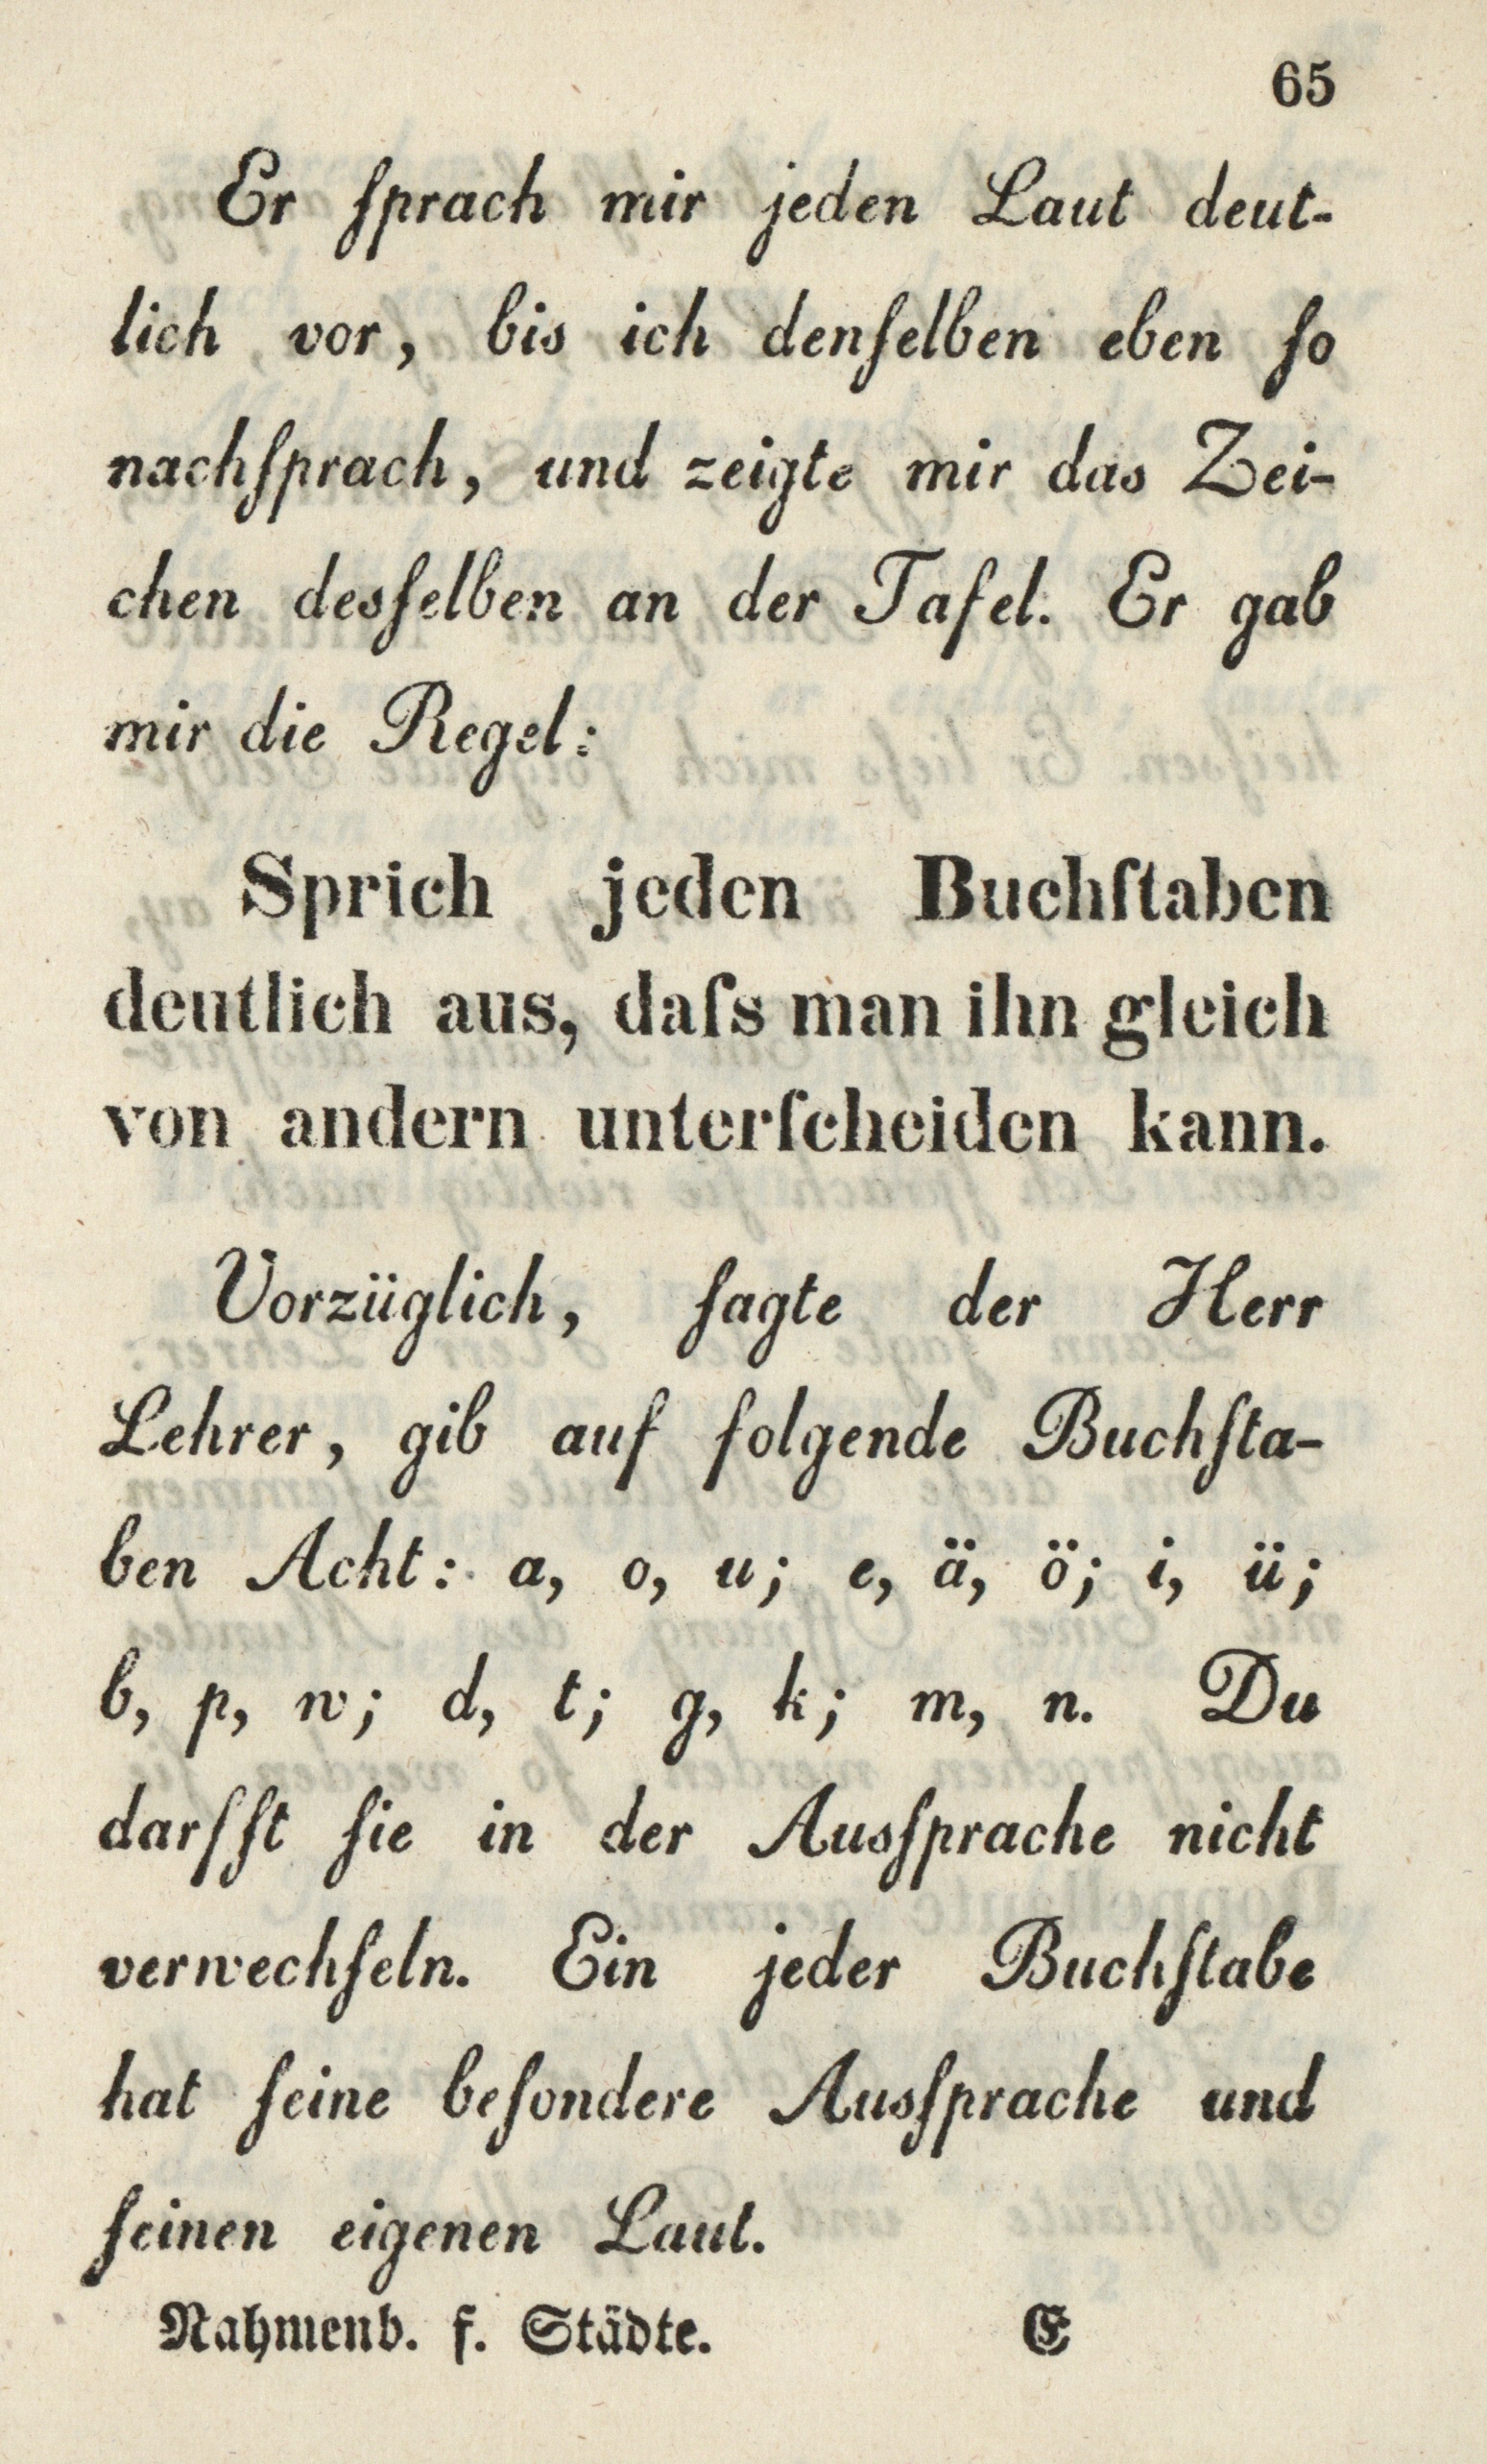 65
Er ſprach mir jeden Laut deut-
lich vor, bis ich denſelben eben ſo
nachſprach, und zeigte mir das Zei-
chen desſelben an der Tafel. Er gab
mir die Regel:
Sprich jeden Buchſtaben
deutlich aus, daſs man ihn gleich
von andern unterſcheiden kann.
Vorzüglich, ſagte der Herr
Lehrer, gib auf folgende Buchſta-
ben Acht: a, o, u; e, ä, ö; i, ü;
b, p, w; d, t; g, k; m, n. Du
darfſt ſie in der Ausſprache nicht
verwechſeln. Ein jeder Buchſtabe
hat ſeine beſondere Ausſprache und
ſeinen eigenen Laut.
Nahmenb. f. Städte. E